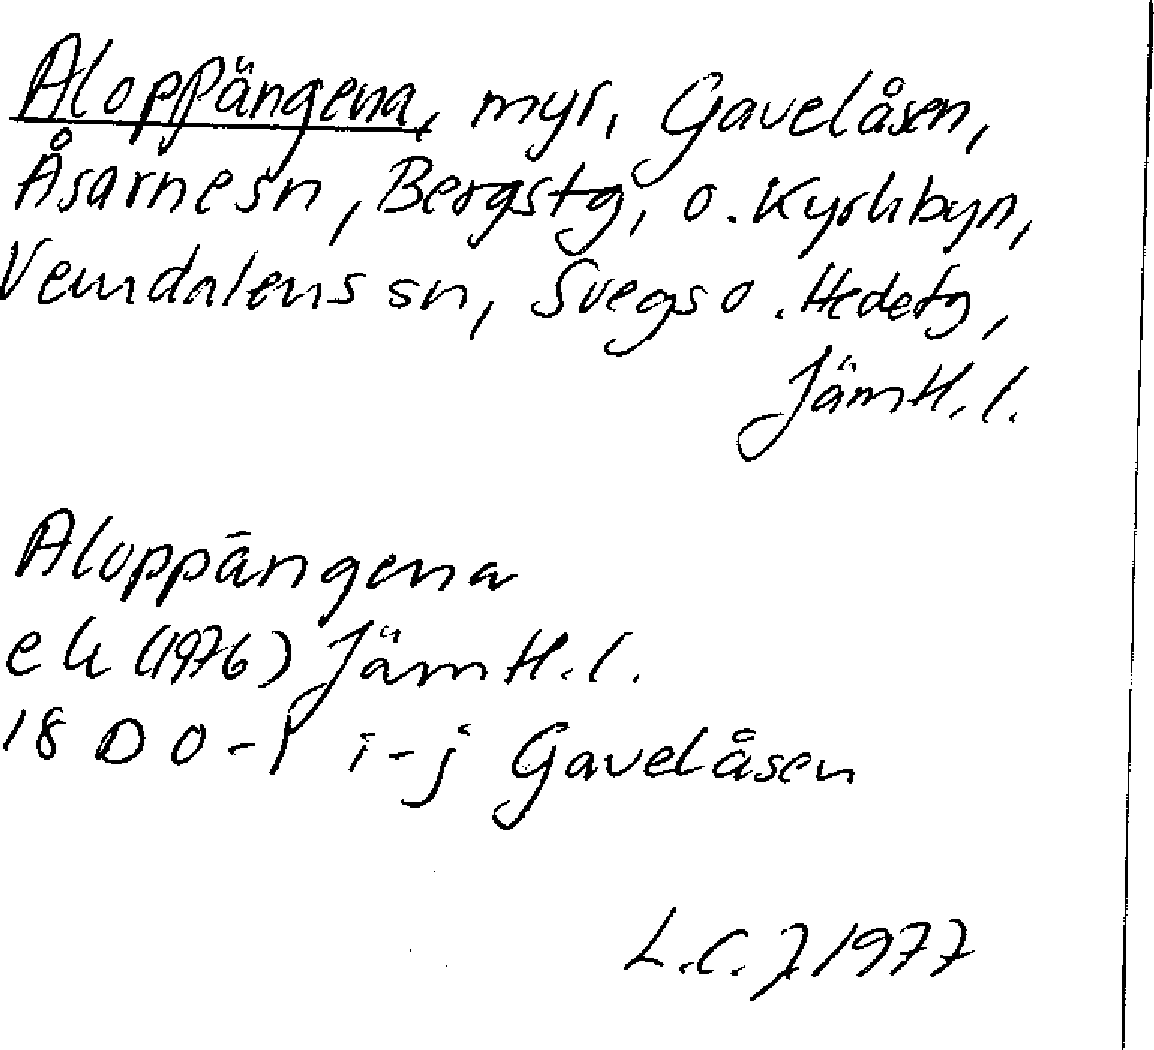 Aloppängena, myr, Gavelåsen,
Åsarne sn, Bergs tg, o. Kyrkbyn,
Vemdalens sn, Svegs o. Hede tg,
Jämtl. l.
Aloppängena
ek (1976) Jämtl. l.
18 D 0-1 i-j Gavelåsen
L.C.J. 1977